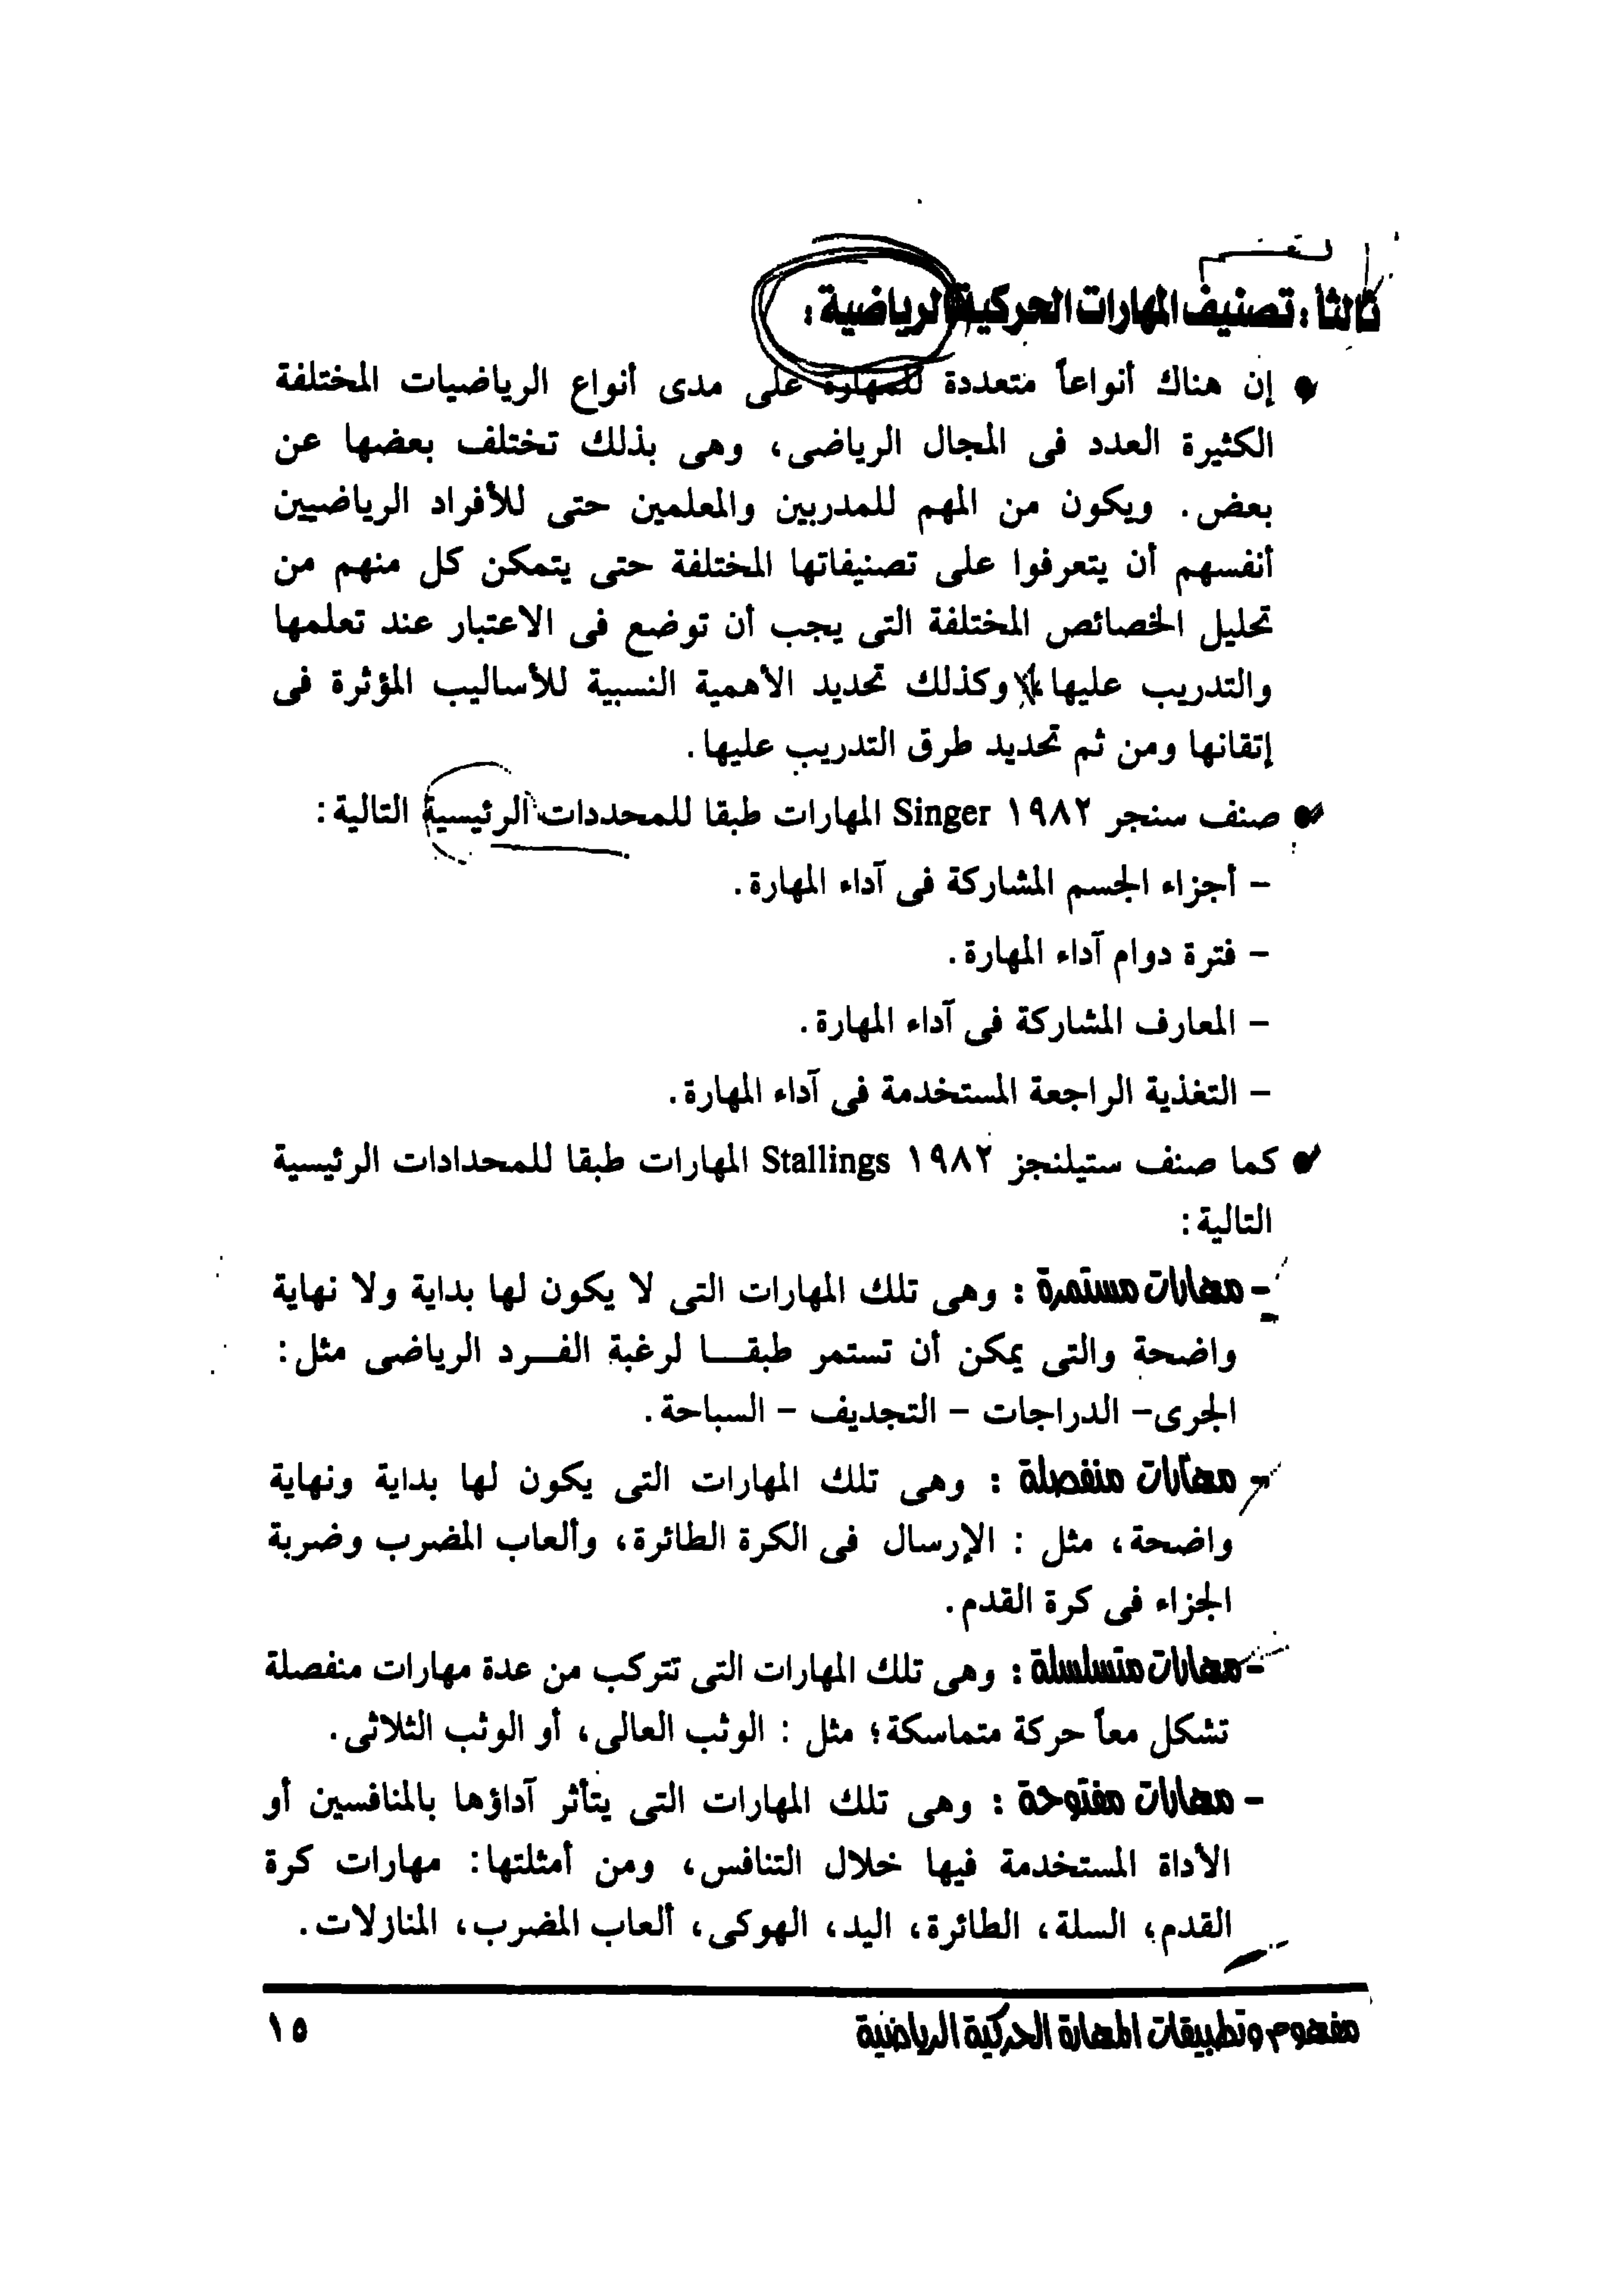 ثالثاً : تصنيف المهارات الحركية الرياضية :
إن هناك أنواعاً متعددة للمهارة على مدى أنواع الرياضيات المختلفة
الكثيرة العدد فى المجال الرياضى، وهى بذلك تختلف بعضها عن
بعض. ويكون من المهم للمدربين والمعلمين حتى للأفراد الرياضيين
أنفسهم أن يتعرفوا على تصنيفاتها المختلفة حتى يتمكن كل منهم من
تحليل الخصائص المختلفة التى يجب أن توضع فى الاعتبار عند تعلمها
والتدريب عليها، وكذلك تحديد الأهمية النسبية للأساليب المؤثرة فى
إتقانها ومن ثم تحديد طرق التدريب عليها.
صنف سنجر ١٩٨٢ Singer المهارات طبقا للمحددات الرئيسية التالية:
- أجزاء الجسم المشاركة فى آداء المهارة.
- فترة دوام آداء المهارة.
- المعارف المشاركة فى آداء المهارة.
- التغذية الراجعة المستخدمة فى آداء المهارة.
كما صنف ستيلنجز ١٩٨٢ Stallings المهارات طبقا للمحدادات الرئيسية
التالية:
- مهارات مستمرة : وهى تلك المهارات التى لا يكون لها بداية ولا نهاية
واضحة والتى يمكن أن تستمر طبقـــا لرغبة الفـــرد الرياضى مثل:
الجرى- الدراجات - التجديف - السباحة.
- مهارات منفصلة : وهى تلك المهارات التى يكون لها بداية ونهاية
واضحة، مثل : الإرسال فى الكرة الطائرة، وألعاب المضرب وضربة
الجزاء فى كرة القدم.
- مهارات متسلسلة : وهى تلك المهارات التى تتركب من عدة مهارات منفصلة
تشكل معاً حركة متماسكة؛ مثل : الوثب العالى، أو الوثب الثلاثى.
- مهارات مفتوحة : وهى تلك المهارات التى يتأثر آداؤها بالمنافسين أو
الأداة المستخدمة فيها خلال التنافس، ومن أمثلتها: مهارات كرة
القدم، السلة، الطائرة، اليد، الهوكى، ألعاب المضرب، المنازلات.
مفهوم وتطبيقات المهارة الحركية الرياضية
١٥